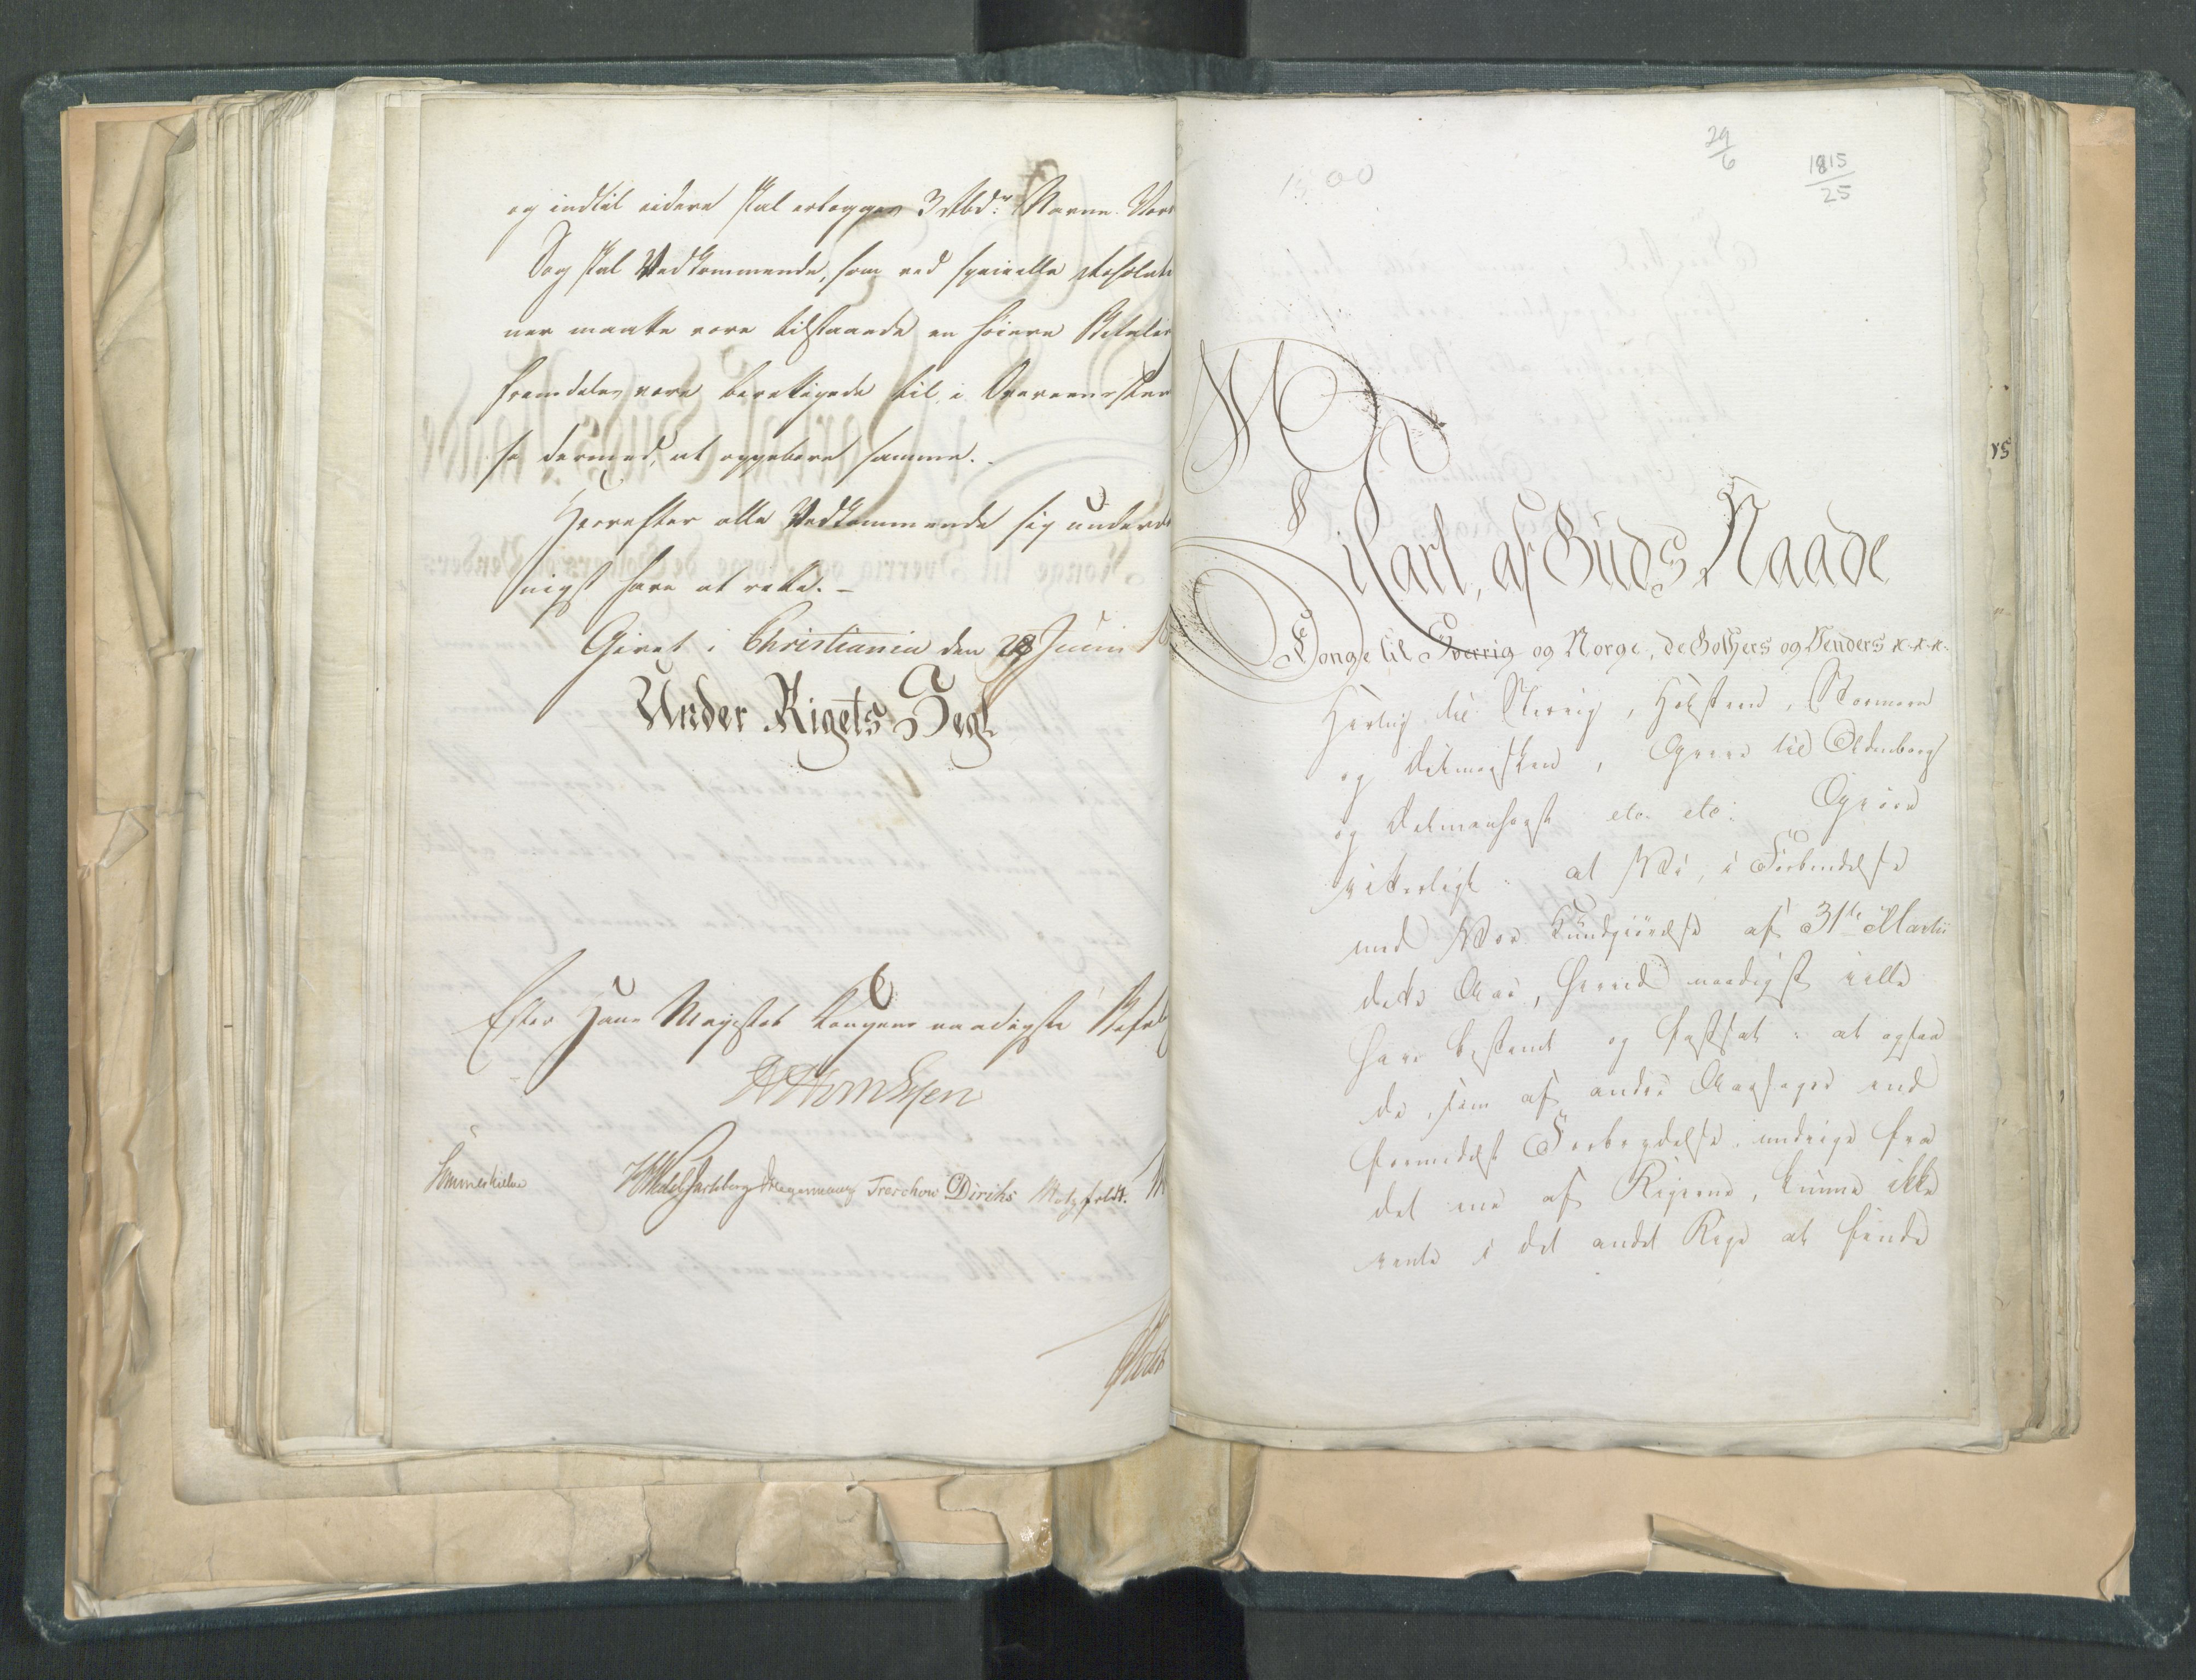 og indtil videre skal erlægges 3 Rbd. Navne Værd
Dog skal Vedkommende, som ved specielle Resolutio
ner maatte være tilstaaede en høiere Betaling
fremdeles være berettigede til, i Overeensstemmel
se dermed, at oppebære samme.
Herefter alle Vedkommende sig underda
nigst have at rette.
Givet i Christiania den 28 Junii
Under Rigets Segl
Efter Hans Majestæt Kongens naadigste Befal
Sommerhielm HWedel Jarlsberg Diegemann Treschow CDiriks Motzfeldt.
29/6
1815/25
Wi
Karl, af Guds Naade
Konge til Sverrig og Norge, de Gothers og Venders
Hertug til Slesvig, Holsteen, Stormarn
og Ditmarsken, Greve til Oldenborg
og Delmenhorst etc. etc: Giøre
vitterligt: at Wi, i Forbindelse
med Vor Kundgiørelse af 31te Martii
dette Aar, herved naadigst ville
have bestemt og fastsat: at ogsaa
de, som af andre Aarsager end
formedelst Forbrydelse, undvige fra
det ene af Rigerne, kunne ikke
vente i det andet Rige at finde